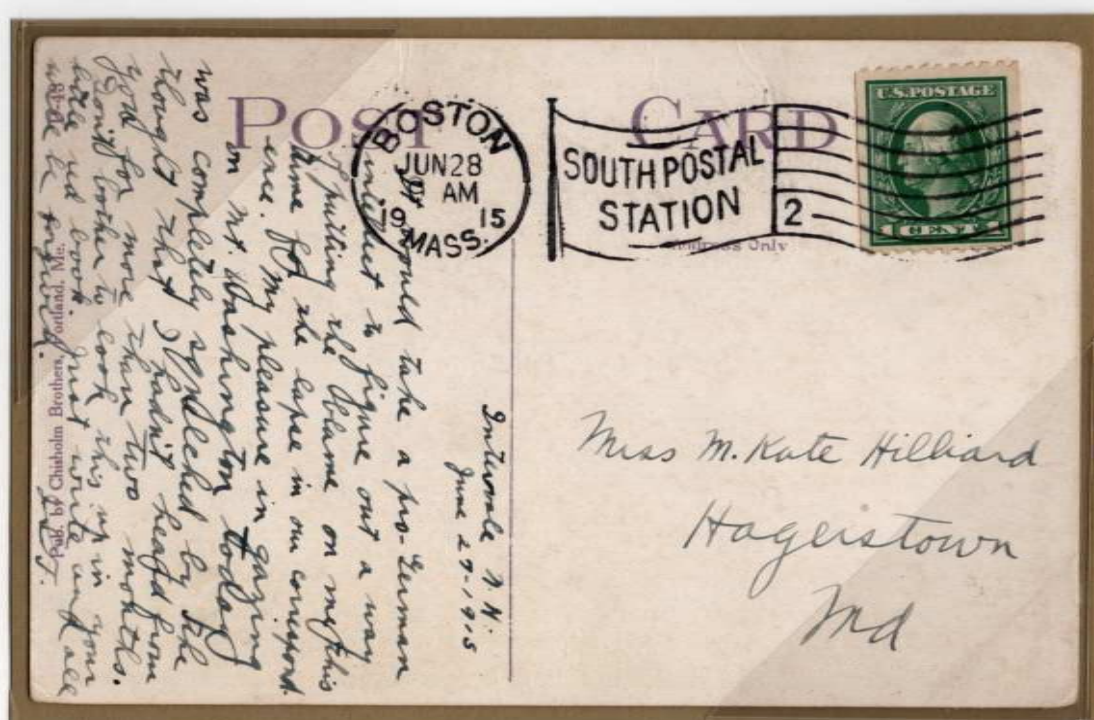 POST CARD
BOSTON
JUN 28
AM
19 15
MASS.
SOUTH POSTAL
STATION
2
U.S. POSTAGE
Address Only
Intervale N.H.
June 27-1915
It would take a pro-German
intellect to figure out a way
of putting the blame on my this
time for the lapse in our correspond
ence. My pleasure in gazing
on Mt. Washington today
was completely squelched by the
thought that I hadn't heard from
you for more than two months.
Don't bother to look this up in your
little red book. Just write and all
will be forgiven.
J.
Pub. by Chisholm Brothers, Portland, Me.
Miss M. Kate Hilliard
Hagerstown
Md